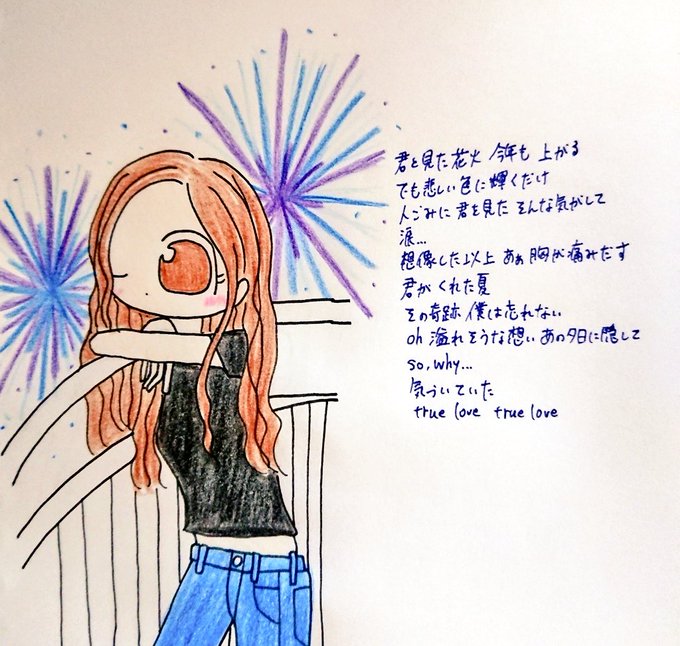 君と見た花火 今年も 上がる
でも悲しい色に輝くだけ
人ごみに 君を見た そんな気がして
涙...
想像した以上 あぁ 胸が痛みだす
君が くれた夏
その奇跡 僕は忘れない
oh 溢れそうな想い あの夕日に隠して
so, why...
気づいていた
true love true love